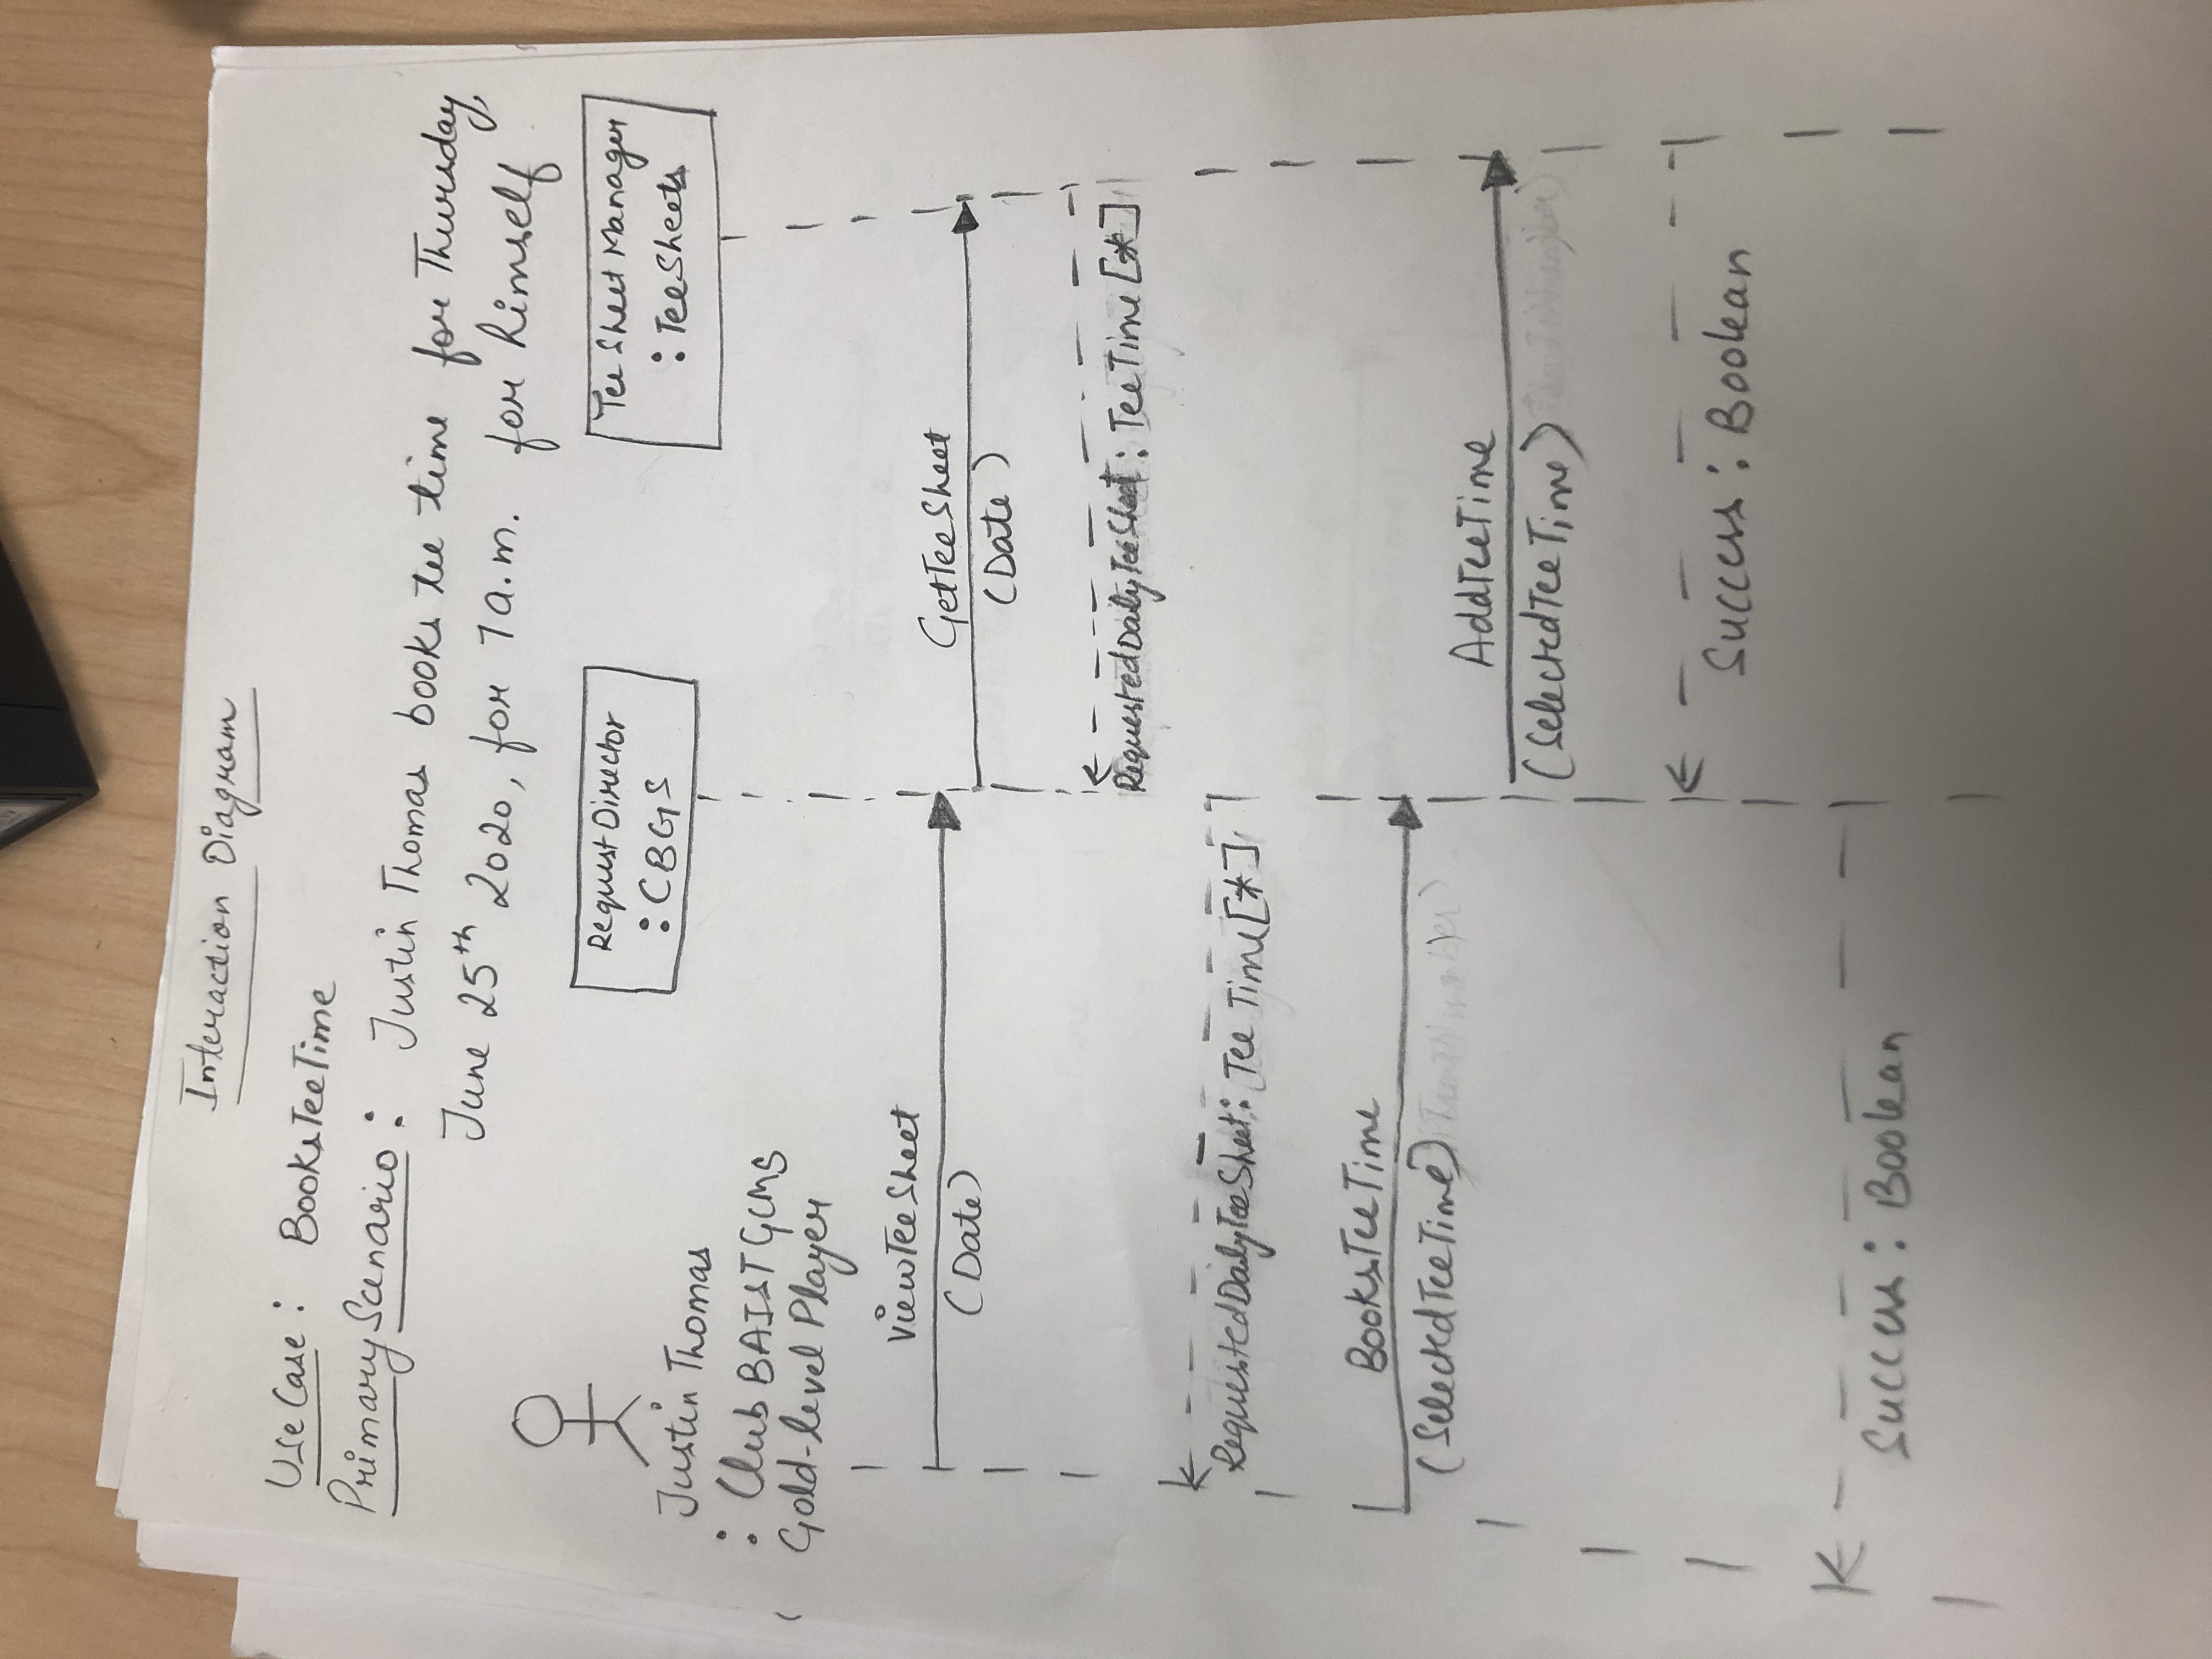 Interaction Diagram
Use Case : BooksTeeTime
Primary Scenario : Justin Thomas books tee time for Thursday,
June 25th 2020, for 7 a.m. for himself
Justin Thomas
: Club BAIST GCMS
Gold-level Player
RequestDirector
: CBGS
Tee Sheet Manager
: TeeSheets
ViewTeeSheet
(Date)
GetTeeSheet
(Date)
RequestedDailyTeeSheet : TeeTime [*]
RequestedDailyTeeSheet : Tee Time [*]
BooksTeeTime
(SelectedTeeTime)
AddTeeTime
(SelectedTeeTime)
Success : Boolean
Success : Boolean